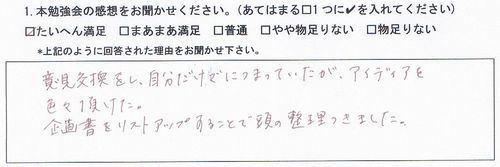 1. 本勉強会の感想をお聞かせください。(あてはまる□1つに✔を入れてください)
☑たいへん満足 □まあまあ満足 □普通 □やや物足りない □物足りない
*上記のように回答された理由をお聞かせ下さい。
意見交換をし、自分だけでにつまっていたが、アイディアを
色々頂けた。
企画書をリストアップすることで頭の整理つきました。